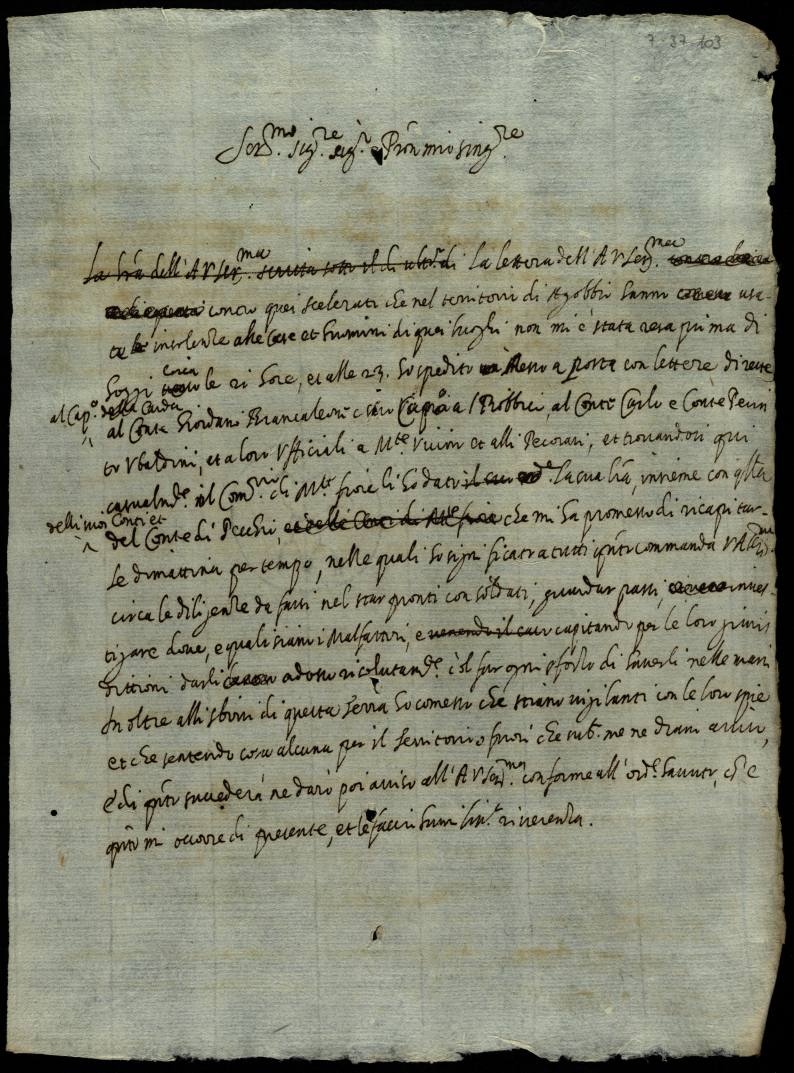 7 37 103
Ser.mo sig.re sig.r e Pron mio sing.re
La lra dell'A V Ser.ma scritta sotto il di ult.o di La lettera dell'A V Ser.ma
contro quei scelerati che nel territorio di Agobbio hanno usa-
te insolenze alle Case et huomini di quei luoghi non mi è stata resa prima di
circa
hoggi le 21 hore, et alle 23. ho spedito Messo a posta con lettere dirette
al Cap.o della Carda
al Conte Giordano Brancaleone al Conte Carlo e Conte
Ubaldini, et a loro Ufficiali a M.te Vicino et alli Pecorari, et trovandosi qui
casualm.te il Com.rio di M.te fiore li ho dato il suo la sua lra, insieme con q.lla
delli suoi Conti et
del Conte di Pecchio, et delli Conti di M.te fiore che mi ha promesso di ricapitar-
le dimattina per tempo, nelle quali ho significato a tutti q.nto commanda V A Ser.ma
circa le diligenze da farsi nel star pronti con soldati, guardar passi, inves-
tigare dove, e quali siano i Malfattori, e venendo il caso capitando per le loro giuris
dittioni darli adosso risolutam.te e col far ogni sforzo di haverli nelle mani
In oltre alli sbirri di questa Serra ho comesso che stiano vigilanti con le loro spie
et che sentendo cosa alcuna per il Territorio o fuori che sub.o me ne diano aviso,
e di q.nto succederà ne darò poi aviso all'A V Ser.ma conforme all'ord.e havuto, ch'è
q.nto mi occorre di presente, et le faccio humiliss.a riverenza.